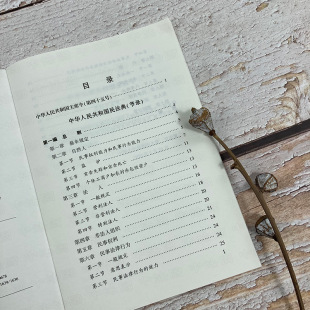 目 录
中华人民共和国主席令(第四十五号) 1
中华人民共和国民法典(节录)
第一编 总 则
第一章 基本规定
第二章 自然人
第一节 民事权利能力和民事行为能力
第二节 监 护
第三节 宣告失踪和宣告死亡
第四节 个体工商户和农村承包经营户
第三章 法 人
第一节 一般规定
第二节 营利法人
第三节 非营利法人
第四节 特别法人
第四章 非法人组织
第五章 民事权利
第六章 民事法律行为
第一节 一般规定
第二节 意思表示
第三节 民事法律行为的效力